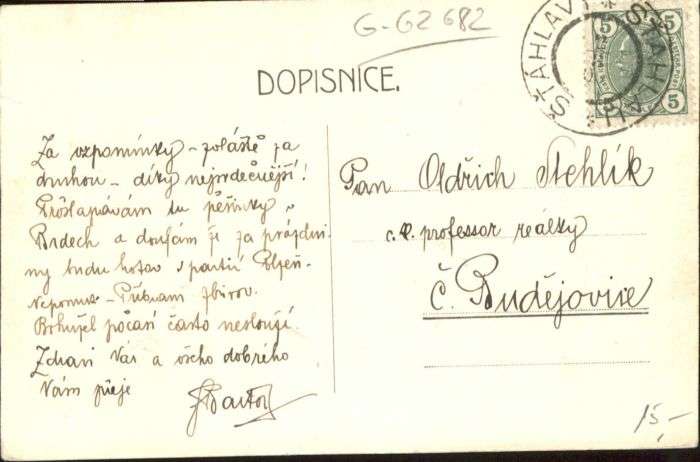 G-G2 682
DOPISNICE.
ŠŤÁHLAVY * ŠŤAHLAU *
5 5
5 5
Za vzpomínky – zvláště za
druhou – díky nejsrdečnější!
Prošlapávám tu pěšinky v
Brdech a doufám že za prázdni-
ny budu hotov s partií Plzeň-
Nepomuk – Příbram Zbirov.
Bohužel počasí často neslouží.
Zdraví Vás a všeho dobrého
Vám přeje
JBartoš
Pan Oldřich Stehlík
c. k. professor reálky
Č. Budějovice
15,-